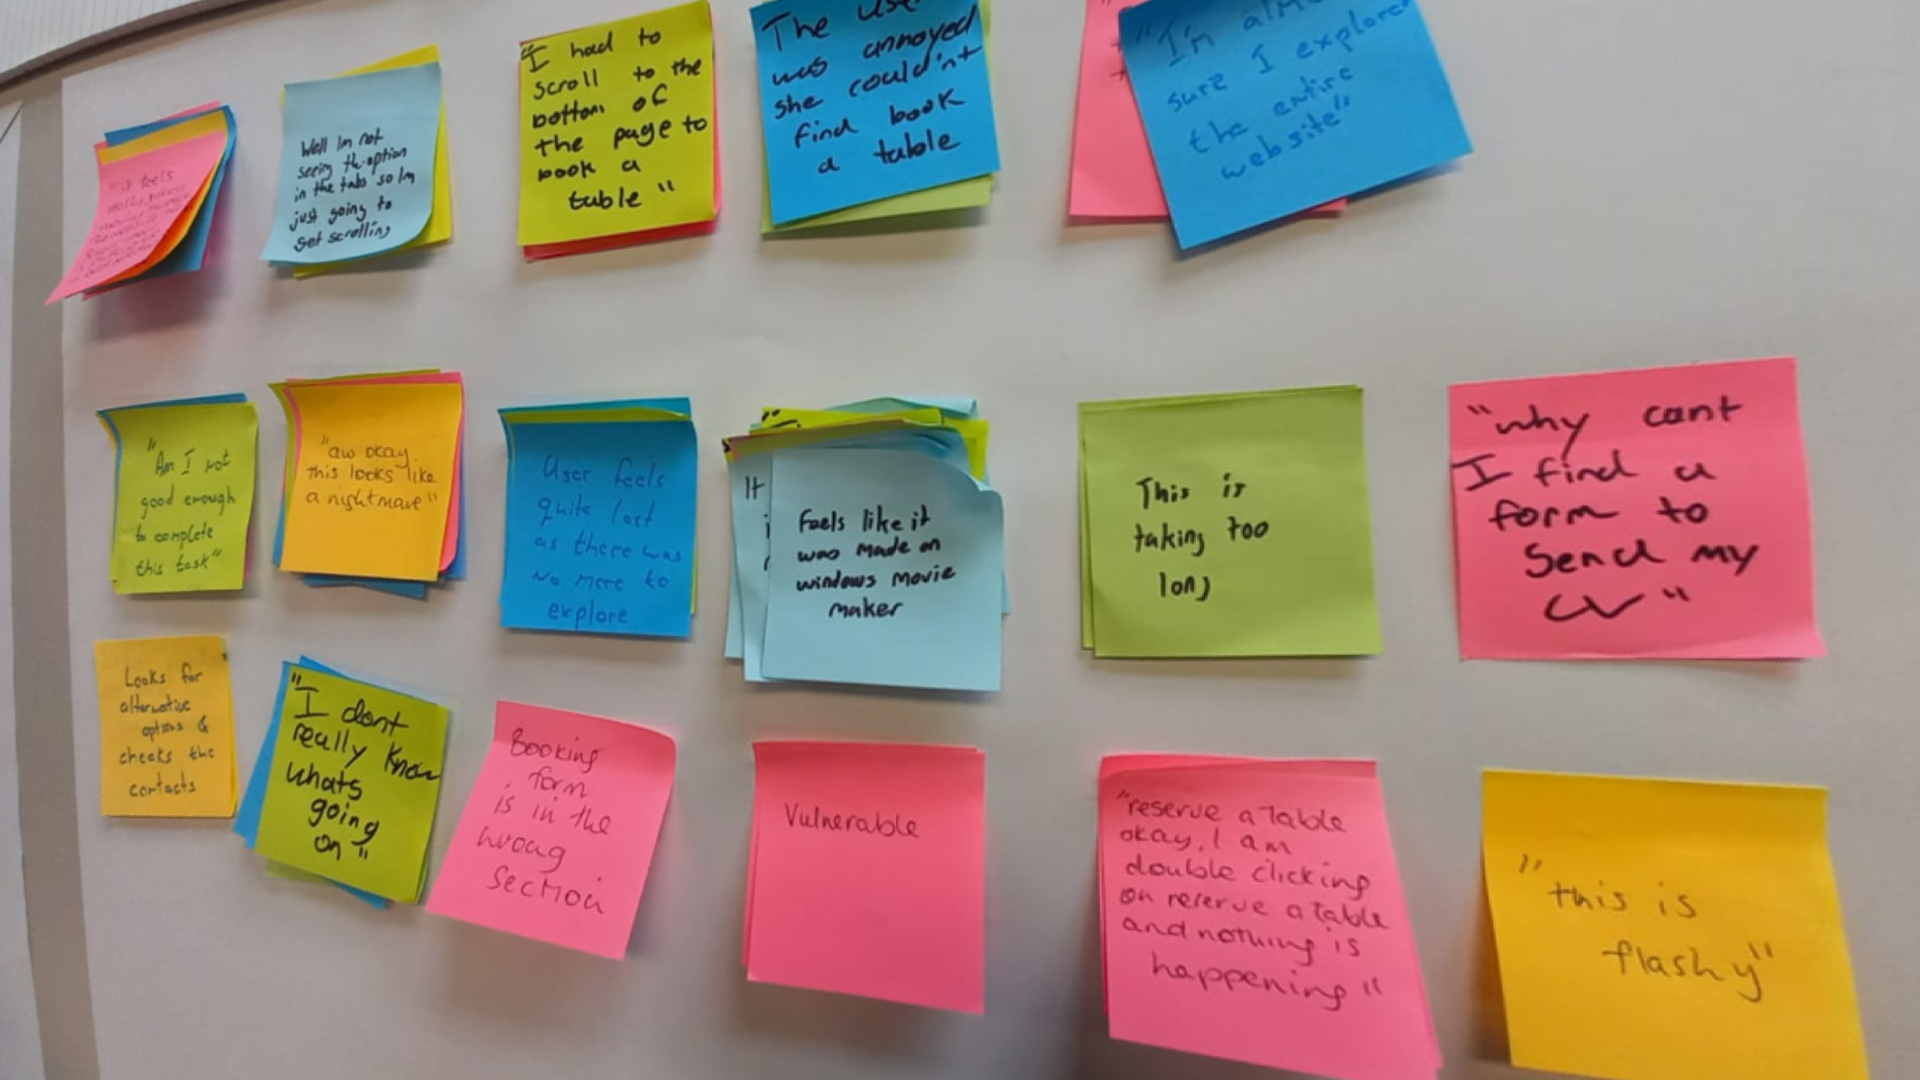 "it feels
Well Im not
seeing the option
in the tabs so Im
just going to
get scrolling
"I had to
scroll to the
bottom of
the page to
book a
table"
The user
was annoyed
she couldn't
find book
a table
"I'm
sure I explored
the entire
website"
"Am I not
good enough
to complete
this task"
"aw okay
this looks like
a nightmare"
User feels
quite lost
as there was
no more to
explore
It
Feels like it
was made on
windows movie
maker
This is
taking too
long
"why cant
I find a
form to
Send my
CV"
Looks for
alternative
options &
checks the
contacts
"I dont
really know
whats
going
on"
Booking
form
is in the
wrong
section
Vulnerable
"reserve a table
okay, I am
double clicking
on reserve a table
and nothing is
happening"
"this is
flashy"